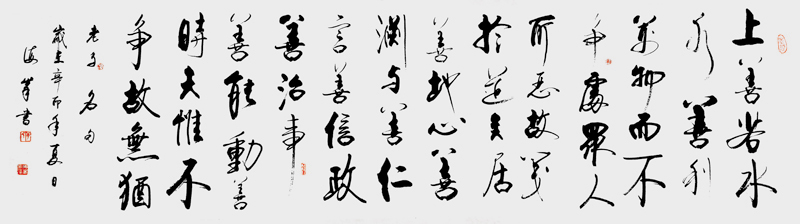 上善若水
水善利
萬物而不
爭處眾人
所惡故幾
於道矣居
善地心善
淵與善仁
言善信政
善治事
善能動善
時夫惟不
爭故無猶
老子名句
歲在辛卯年夏日
書